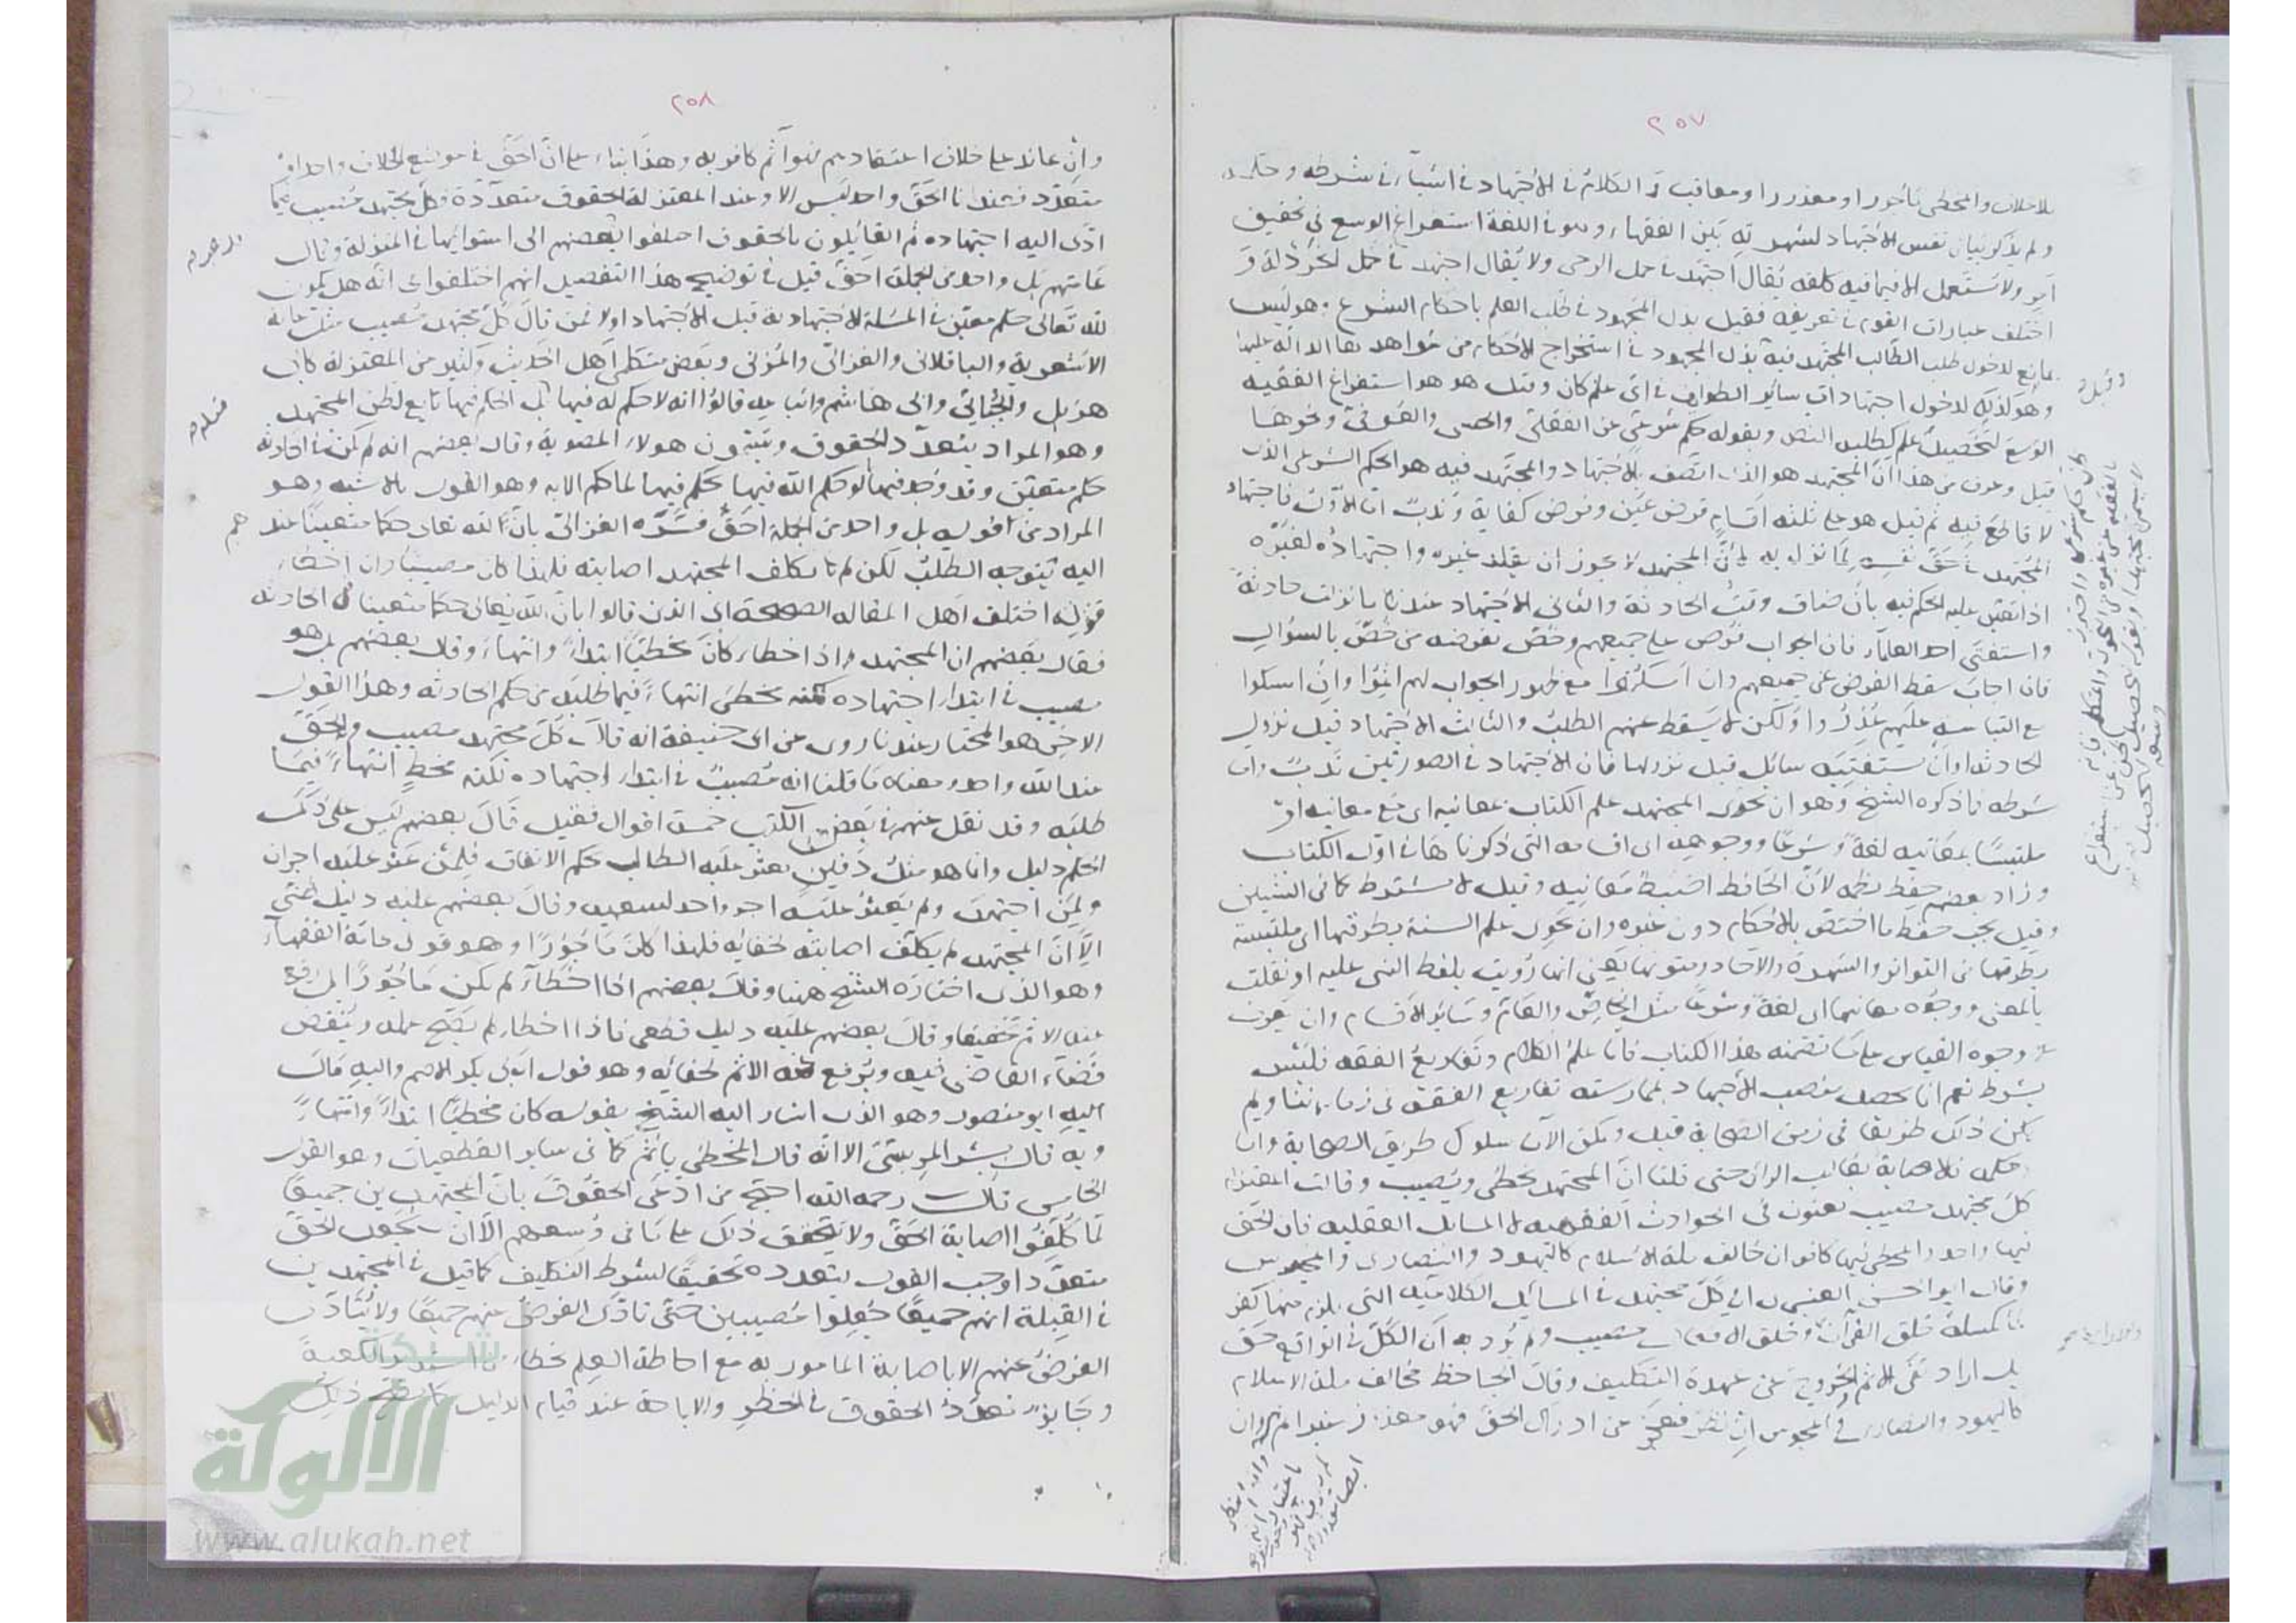 ٢٥٧
بلا خلاف والمخطئ مأجورا ومعذورا ومعاقب ثم الكلام في الاجتهاد في اشياء في شرطه وحكمه
ولم يذكر بيان نفس الاجتهاد لشهرته بين الفقهاء وهو في اللغة استفراغ الوسع في تحقيق
امر ولا يستعمل الا فيما فيه كلفة يقال اجتهد في حمل الرحى ولا يقال اجتهد في حمل الخردلة و
اختلف عبارات القوم في تعريفه فقيل بذل المجهود في طلب العلم باحكام الشرع وهو ليس
بمانع لدخول طلب الطالب المجتهد فيه بذل المجهود في استخراج الاحكام من شواهدها الدالة عليها
وهو كذلك لدخول اجتهادات سائر الطوايف في اي علم كان وقيل هو استفراغ الفقيه
الوسع لتحصيل علم كطلب النص وبقوله حكم شرعي عن العقلي والحسي والعرفي ونحوها
قيل وعرف من هذا ان المجتهد هو الذي اتصف بالاجتهاد والمجتهد فيه هو الحكم الشرعي الذي
لا قاطع فيه ثم قيل هو على ثلثة اقسام فرض عين وفرض كفاية وندب اما الاول فاجتهاد
المجتهد في حق نفسه لما نزل به لان المجتهد لا يجوز ان يقلد غيره واجتهاده لغيره
اذا تعين عليه الحكم فيه بان ضاق وقت الحادثة والثاني الاجتهاد عندنا بانزلت حادثة
واستفتى احد العلماء فان الجواب فرض على جميعهم وخص بفرضه من خص بالسؤال
فان اجاب سقط الفرض عن جميعهم وان امسكوا مع ظهور الجواب لهم اثموا وان امسكوا
مع التباسه عليهم عذروا ولكن لا يسقط عنهم الطلب والثالث الاجتهاد قبل نزول
الحادثة او ان يستفتيه سائل قبل نزولها فان الاجتهاد في الصورتين ندب واما
شرطه ما ذكره الشيخ وهو ان يحوي المجتهد علم الكتاب بمعانيه اي مع معانيه او
ملتبسا بمعانيه لغة وشرعا ووجوهه اي اقسامه التي ذكرناها في اول الكتاب
وزاد بعضهم حفظ نظمه لان الحافظ اضبط لمعانيه وقيل لا يشترط كما في التبيين
وقيل يجب حفظ ما اختص بالاحكام دون غيره وان يحوي علم السنة بطرقها اي ملتبسة
بطرقها في التواتر والشهرة والآحاد ومتونها يعني انها رويت بلفظ النبي عليه او نقلت
بالمعنى ووجوه معانيها اي لغة وشرعا مثل الخاص والعام وسائر الاقسام وان يعرف
وجوه القياس على ما تضمنه هذا الكتاب فاما علم الكلام وتفاريع الفقه فليس
بشرط نعم انما يحصل منصب الاجتهاد بممارسة تفاريع الفقه في زماننا ولم
يكن ذلك طريقا في زمن الصحابة قيل ويمكن الآن سلوك طريق الصحابة واما
حكمه فالاصابة بغالب الرأي حتى قلنا ان المجتهد يخطئ ويصيب وقالت المعتزلة
كل مجتهد مصيب يعنون في الحوادث الفقهية لا المسائل العقلية فان الحق
فيها واحد والمخطئ فيها كافر ان خالف ملة الاسلام كاليهود والنصارى والمجوس
وقال ابو الحسن العنبري كل مجتهد في المسائل الكلامية التي لا يلزم منها كفر
كمسئلة خلق القرآن وخلق الافعال مصيب ولم يرد به ان الكل في الواقع حق
بل اراد نفي الاثم والخروج عن عهدة التكليف وقال الجاحظ مخالف ملة الاسلام
كاليهود والنصارى والمجوس ان نظر فعجز عن ادراك الحق فهو معذور غير آثم وان
٢٥٨
وان عاند على خلاف اعتقادهم فهو آثم كافر به وهذا بناء على ان الحق في موضع الخلاف واحد او
متعدد فعندنا الحق واحد ليس الا وعند المعتزلة الحقوق متعددة وكل مجتهد مصيب فيما
ادى اليه اجتهاده ثم القائلون بالحقوق اختلفوا بعضهم الى استوائها في المنزلة وقال
عامتهم بل واحد من الجملة احق قيل في توضيح هذا التفصيل انهم اختلفوا في انه هل يكون
لله تعالى حكم معين في المسئلة الاجتهادية قبل الاجتهاد او لا فمن قال كل مجتهد مصيب مثل عامة
الاشعرية والباقلاني والغزالي والمزني وبعض متكلمي اهل الحديث وكثير من المعتزلة كابي
هذيل والجبائي وابي هاشم واتباعه قالوا انه لا حكم له فيها بل الحكم فيها تابع لظن المجتهد
وهو المراد بتعدد الحقوق ويسمون هولاء المصوبة وقال بعضهم انه لم يكن في الحادثة
حكم متعين وقد وجد فيها ما لو حكم الله فيها بحكم فيها لما حكم الا به وهو القول بالاشبه وهو
المراد من قوله بل واحد من الجملة احق فسره الغزالي بان لله تعالى حكما متعينا عنده
اليه يتوجه الطلب لكن لم يكلف المجتهد اصابته فلهذا كان مصيبا وان اخطأ
قوله اختلف اهل المقالة الصحيحة اي الذين قالوا بان لله تعالى حكما متعينا في الحادثة
فقال بعضهم ان المجتهد اذا اخطا كان مخطئا ابتداء وانتهاء وقال بعضهم بل هو
مصيب في ابتداء اجتهاده لكنه مخطئ انتهاء فيما طلبه من حكم الحادثة وهذا القول
الاخير هو المختار عندنا روى عن ابي حنيفة انه قال كل مجتهد مصيب والحق
عند الله واحد ومعناه ما قلنا انه مصيب في ابتداء اجتهاده لكنه مخط انتهاء فيما
طلبه وقد نقل عنهم في بعض الكتب خمسة اقوال فقيل قال بعضهم ليس على ذلك
الحكم دليل وانما هو مثل دفين يعثر عليه الطالب بحكم الاتفاق فلمن عثر عليه اجران
ولمن اجتهد ولم يعثر عليه اجر واحد لسعيه وقال بعضهم عليه دليل ظني
الا ان المجتهد لم يكلف اصابته لخفائه فلهذا كان مأجورا وهو قول عامة الفقهاء
وهو الذي اختاره الشيخ ههنا وقال بعضهم اذا اخطأ لم يكن مأجورا
عنه الاثم تخفيفا وقال بعضهم عليه دليل قطعي فاذا اخطا لم يصح عمله وينقض
قضاء القاضي فيه ويرفع عنه الاثم لخفائه وهو قول ابي بكر الاصم واليه مال
اليه ابو منصور وهو الذي اشار اليه الشيخ بقوله كان مخطئا ابتداء وانتهاء
وبه قال بشر المريسي الا انه قال المخطئ يأثم كما في سائر القطعيات وهو القول
الخامس قال رحمه الله احتج من ادعى الحقوق بان المجتهدين جميعا
لما كلفوا اصابة الحق ولا يتحقق ذلك على ما في وسعهم الا ان يجعل الحق
متعددا وجب القول بتعدده تحقيقا لشرط التكليف كما قيل في المجتهدين
في القبلة انهم جميعا جعلوا مصيبين حتى تأدى الفرض عنهم جميعا ولا يتأدى
الفرض عنهم الا باصابة المأمور به مع احاطة العلم بخطأ الكعبة
وجائز تعدد الحقوق في الحظر والاباحة عند قيام الدليل كما صح ذلك
شبكة
الألوكة
www.alukah.net